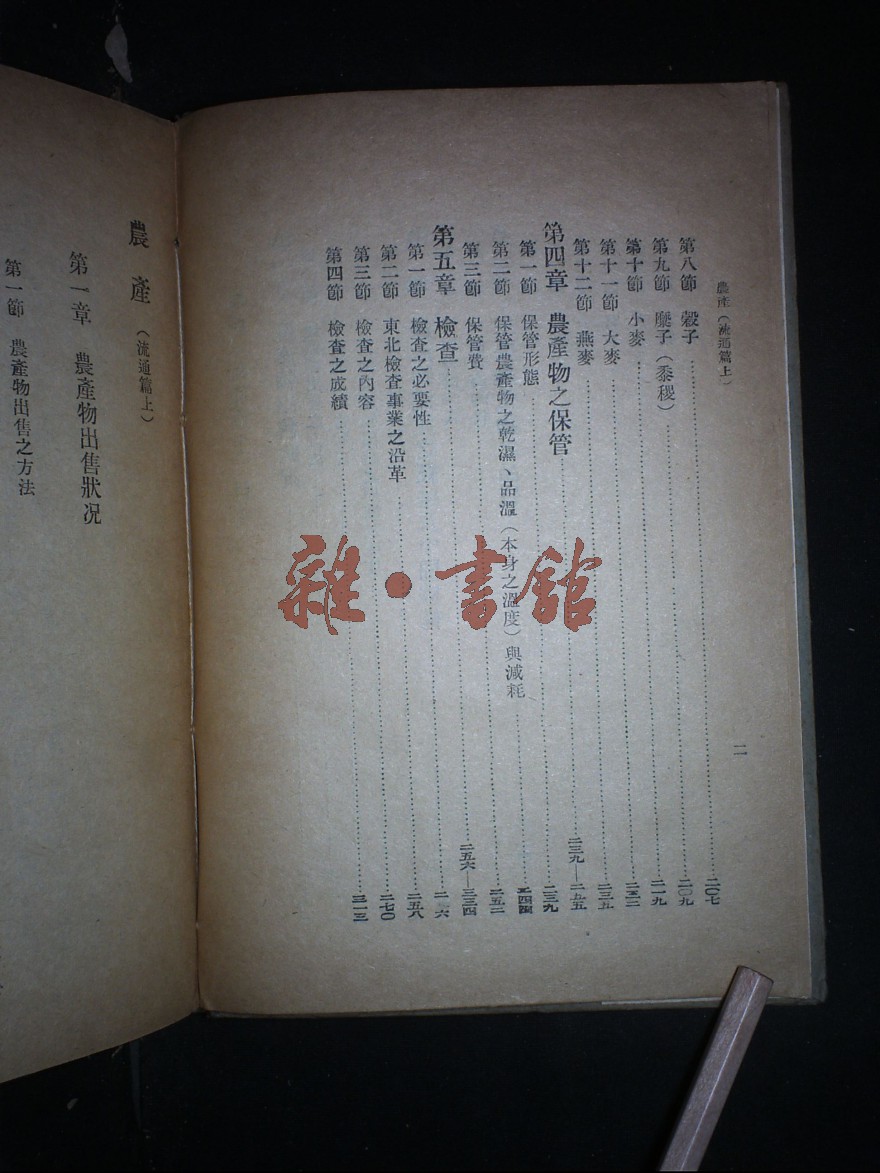 農產(流通篇上)
二
第八節 穀子 二〇七
第九節 糜子(黍稷) 二〇九
第十節 小麥 二一九
第十一節 大麥
第十二節 燕麥 二三五
第四章 農產物之保管 二三九—二九五
第一節 保管形態 二三九
第二節 保管農產物之乾濕、品溫(本身之溫度)與減耗 二四四
第三節 保管費 二五二
第五章 檢查 二五六—三三四
第一節 檢查之必要性
第二節 東北檢查事業之沿革 二五八
第三節 檢查之內容 二七〇
第四節 檢查之成績 三一三
農產(流通篇上)
第一章 農產物出售狀况
第一節 農產物出售之方法
雜·書館